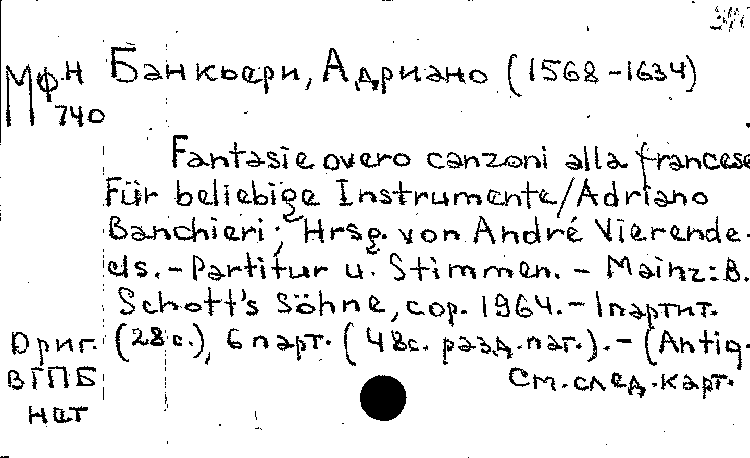 МФН Банкьери, Адриано (1568-1634)
740
Fantasie overo canzoni alla francese
Für beliebige Instrumente/Adriano
Banchieri; Hrsg. von André Vierende-
els. - Partitur u. Stimmen. - Mainz: B.
Schott's Söhne, cop. 1964. - 1 партит.
Ориг. (28 с.), 6 парт. (48 с. разд. паг.). - (Antiq.
ВГПБ См. след. карт.
нет